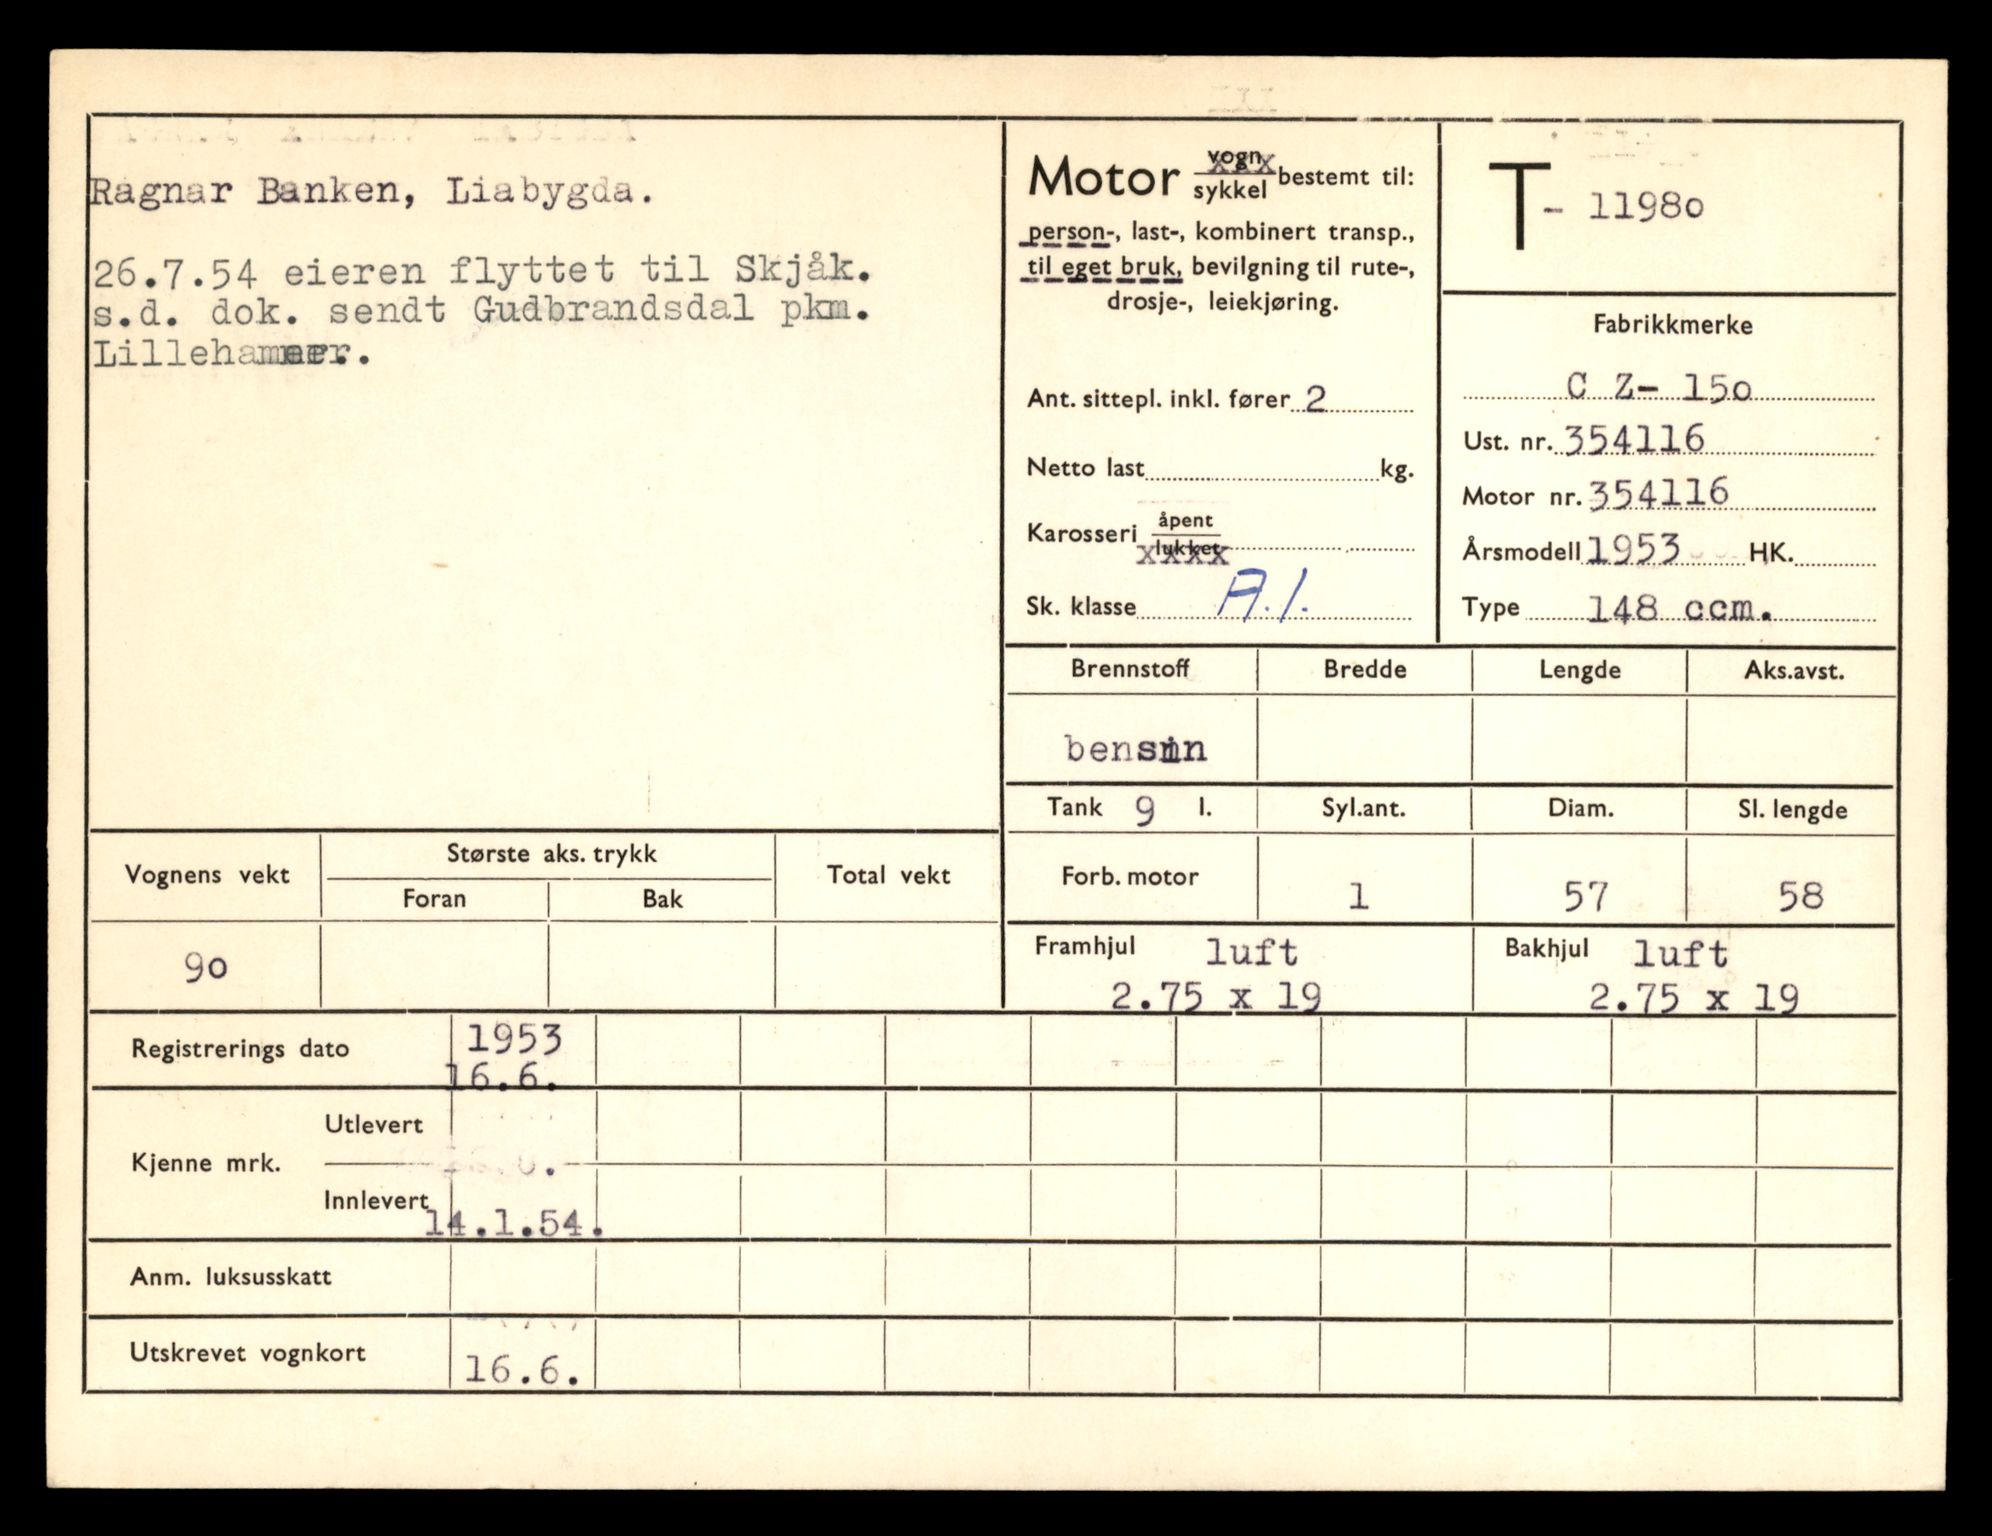 Ragnar Banken, Liabygda.
26.7.54 eieren flyttet til Skjåk.
s.d. dok. sendt Gudbrandsdal pkm.
Lillehammer.
Motor vogn sykkel bestemt til:
person-, last-, kombinert transp.,
til eget bruk, bevilgning til rute-,
drosje-, leiekjøring.
Ant. sittepl. inkl. fører 2
Netto last kg.
Karosseri åpent lukket
Sk. klasse A.1.
T - 1198o
Fabrikkmerke
C Z- 15o
Ust. nr. 354116
Motor nr. 354116
Årsmodell 1953 HK.
Type 148 ccm.
Brennstoff Bredde Lengde Aks.avst.
bensin
Tank 9 l. Syl.ant. Diam. Sl. lengde
Forb. motor 1 57 58
Framhjul luft Bakhjul luft
2.75 x 19 2.75 x 19
Vognens vekt Største aks. trykk Total vekt
Foran Bak
9o
Registrerings dato 1953
16.6.
Kjenne mrk. Utlevert
Innlevert 14.1.54.
Anm. luksusskatt
Utskrevet vognkort 16.6.